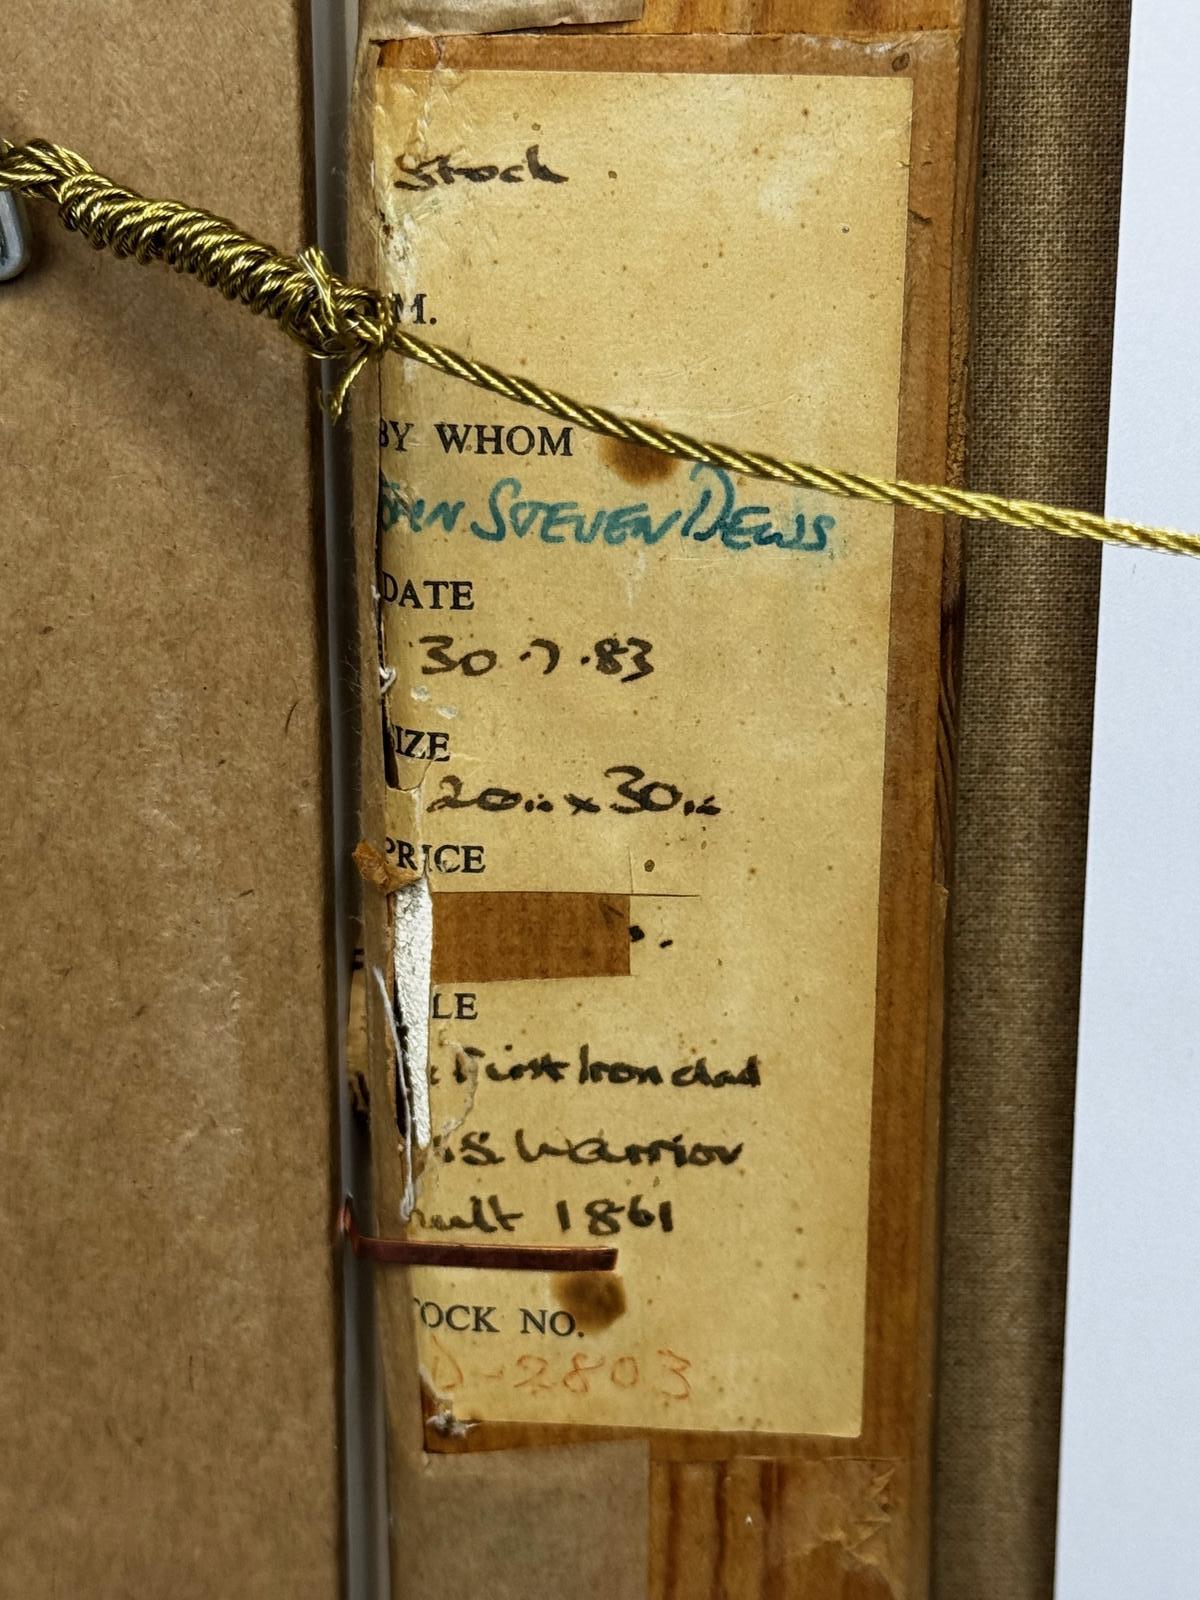 Stock
M.
BY WHOM
John Steven Dews
DATE
30.7.83
SIZE
20.. x 30..
PRICE
LE
First Ironclad
.S. Warrior
built 1861
TOCK NO.
D-2803